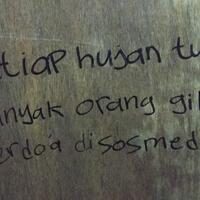 tiap hujan tu
nyak orang gil
erdo'a disosmed